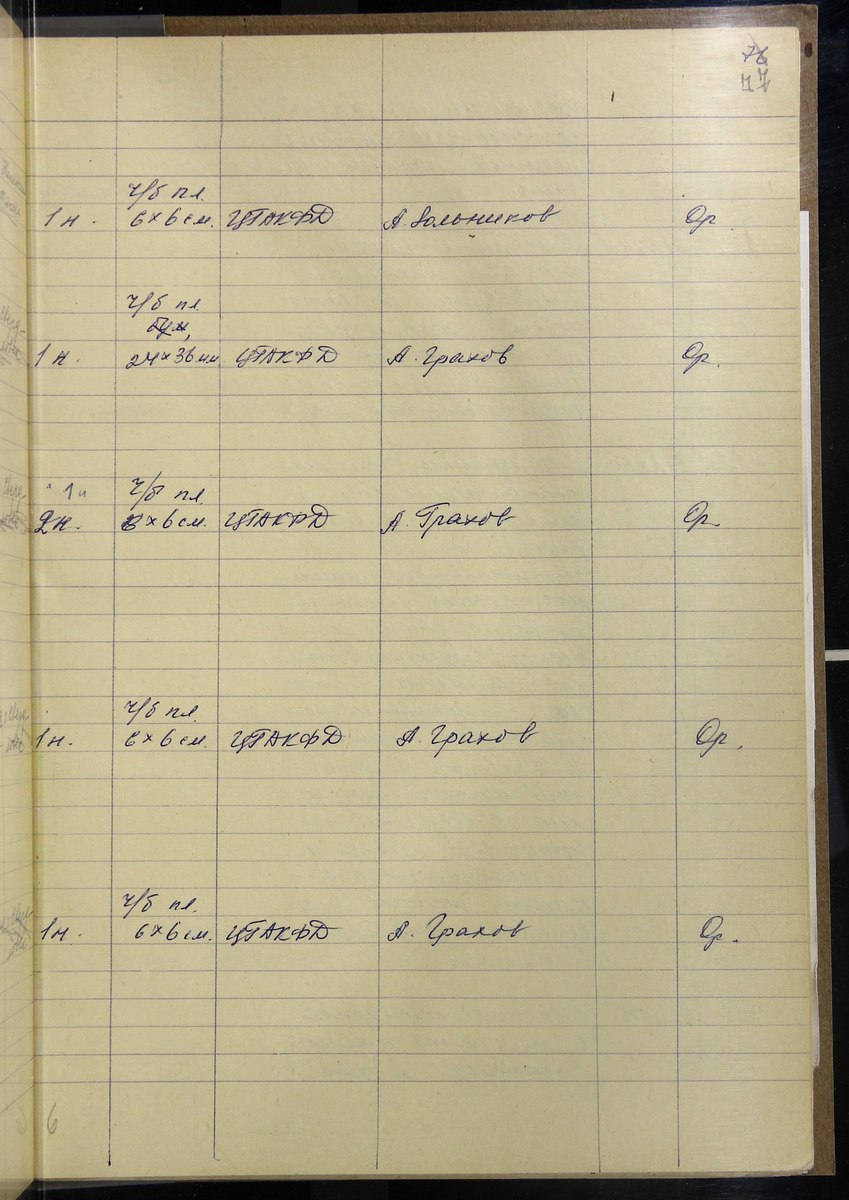 76
77
ч/б пл.
1н. 6×6 см. ЦГАКФД А. Вольников Ор
ч/б пл.
бум,
1н. 24×36 мм. ЦГАКФД А. Грахов Ор.
"1" ч/б пл.
2н. 6×6 см. ЦГАКФД А. Грахов Ор.
ч/б пл.
1н. 6×6 см. ЦГАКФД А. Грахов Ор.
ч/б пл.
1н. 6×6 см. ЦГАКФД А. Грахов Ор.
6